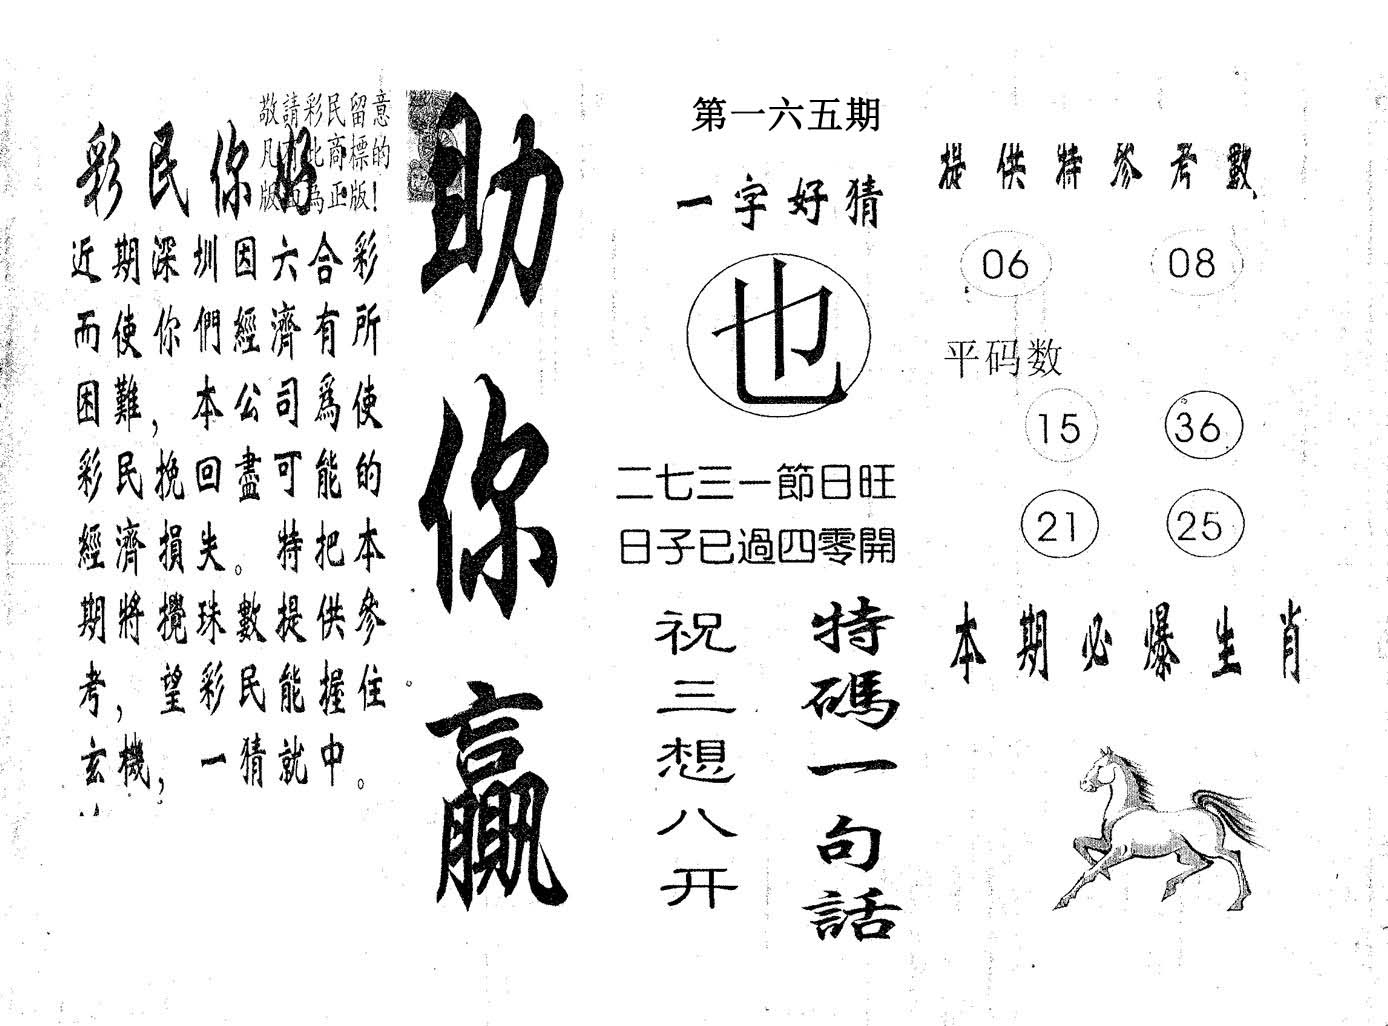 敬請彩民留意
凡有此商標的
版面為正版！
彩民你好
近期深圳因六合彩
而使你們經濟有所
困難，本公司爲使
彩民挽回盡可能的
經濟損失。特把本
期將攪珠數提供參
考，望彩民能握住
玄機，一猜就中。
助你贏
第一六五期
一字好猜
也
二七三一節日旺
日子已過四零開
特碼一句話
祝三想八开
提供特参考數
06 08
平码数
15 36
21 25
本期必爆生肖